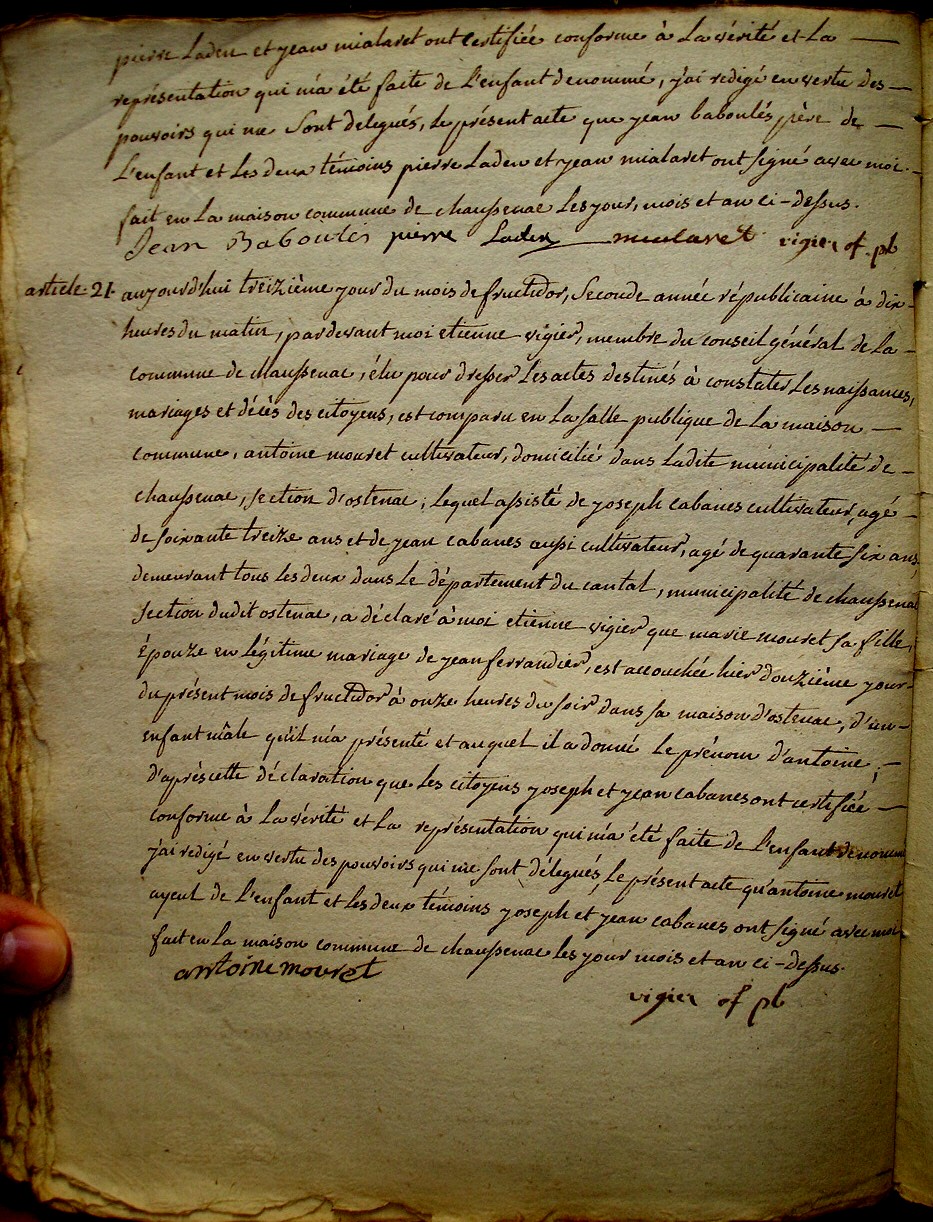 pierre Ladeu et yean mialaret ont certifiée conforme à La vérité et La —
représentation qui m'a été faite de L'enfant denommé, j'ai redigé en vertu des —
pouvoirs qui me Sont delegués, Le présent acte que yean baboulés père de —
L'enfant et Les deux témoins pierre Ladeu et yean mialaret ont signé avec moi.
fait en La maison commune de chaussenac Les your, mois et an ci-dessus.
Jean Baboules pierre mialaret vigier of. pb
article 21 auyourd'hui treizième your du mois de fructidor, Seconde année républicaine à dix
heures du matin, pardevant moi etienne vigier, membre du conseil général de La —
commune de chaussenac, élu pour dresser Les actes destinés à constater Les naissances,
mariages et décès des citoyens, est comparu en La salle publique de La maison —
commune, antoine mouret cultivateur, domicilié dans Ladite municipalité de —
chaussenac, section d'ostenac, Lequel assisté de yoseph cabanes cultivateur, agé —
de soixante treize ans et de yean cabanes aussi cultivateur, agé de quarante six ans,
demeurant tous Les deux dans Le département du cantal, municipalité de chaussenac
section dudit ostenac, a déclaré à moi etienne vigier que marie mouret sa fille,
épouze en légitime mariage de yean ferrandier, est accouchée hier douzième your
du présent mois de fructidor à onze heures du soir dans sa maison d'ostenac, d'un
enfant mâle qu'il m'a présenté et auquel il a donné Le prénom d'antoine; —
d'après cette déclaration que Les citoyens yoseph et yean cabanes ont certifiée —
conforme à La vérité et La représentation qui m'a été faite de L'enfant denommé
j'ai redigé en vertu des pouvoirs qui me sont délegués, Le présent acte qu'antoine mouret
ayeul de L'enfant et Les deux témoins yoseph et yean cabanes ont signé avec moi
fait en La maison commune de chaussenac Les your mois et an ci-dessus.
antoine mouret
vigier of pb